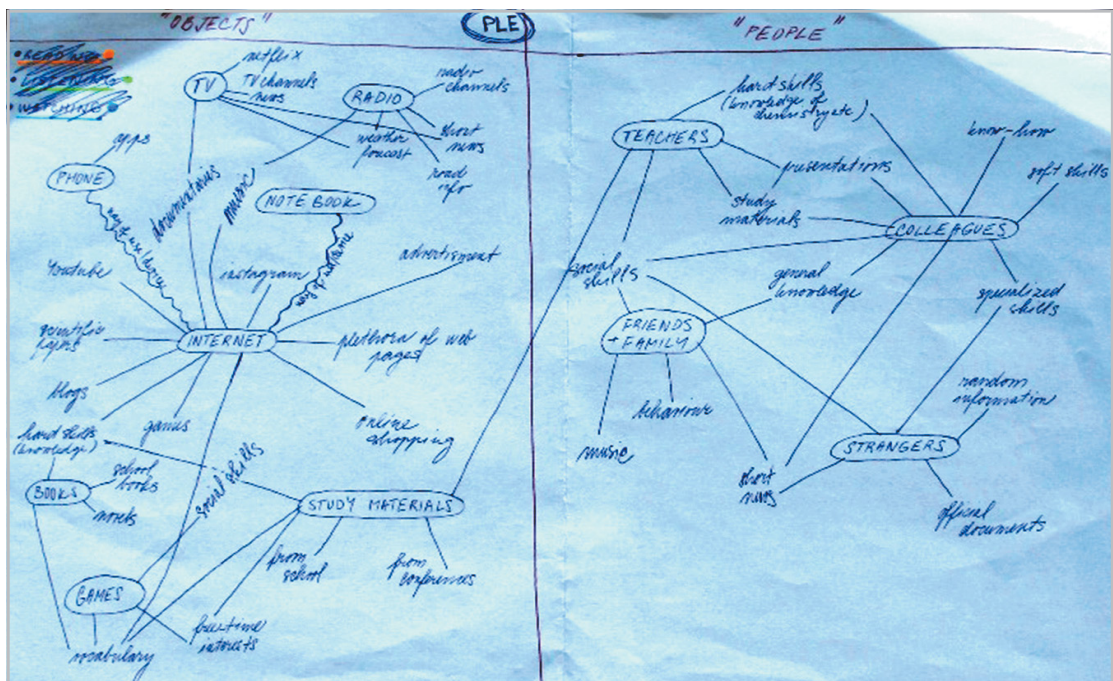 "OBJECTS"
PLE
"PEOPLE"
• READING
• LISTENING
• WATCHING
TV
netflix
TV channels
news
RADIO
radio
channels
short
news
weather
forecast
road
info
apps
PHONE
way of use/device
documentaries
music
NOTEBOOK
Youtube
instagram
advertisment
scientific
papers
INTERNET
plethora of web
pages
blogs
games
online
shopping
hard skills
(knowledge)
BOOKS
school
books
novels
social skills
STUDY MATERIALS
from
school
from
conferences
GAMES
free time
interests
vocabulary
hard skills
(knowledge of
chemistry etc)
TEACHERS
know-how
presentations
soft skills
study
materials
COLLEAGUES
social
skills
general
knowledge
specialized
skills
FRIENDS
+ FAMILY
random
information
behaviour
music
STRANGERS
short
news
official
documents